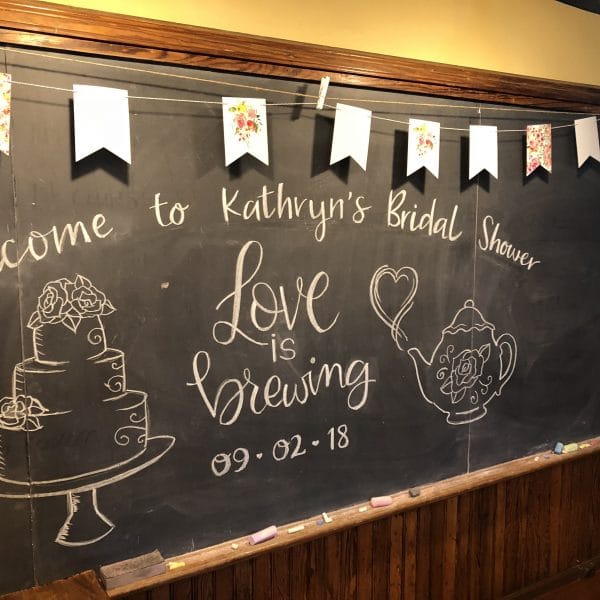 come to Kathryn's Bridal Shower
Love
is
brewing
09.02.18